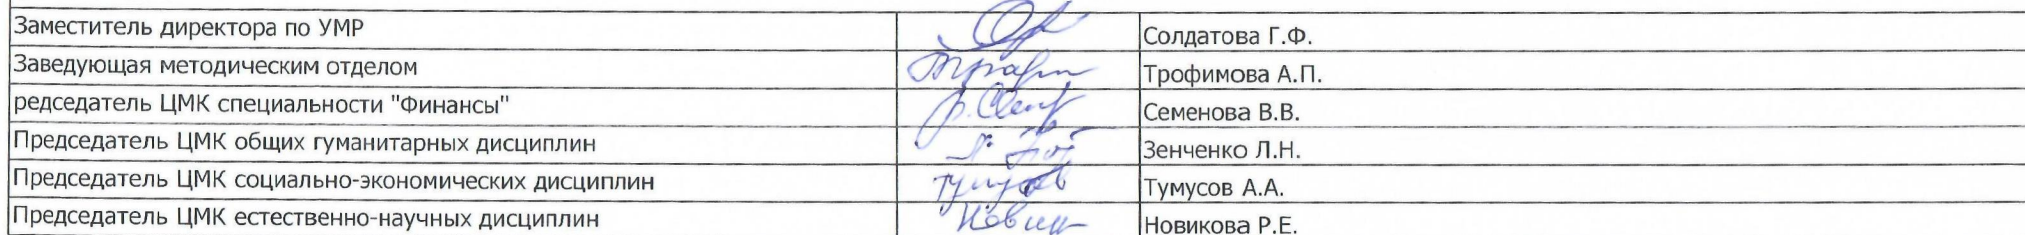 Заместитель директора по УМР Солдатова Г.Ф.
Заведующая методическим отделом Трофимова А.П.
редседатель ЦМК специальности "Финансы" Семенова В.В.
Председатель ЦМК общих гуманитарных дисциплин Зенченко Л.Н.
Председатель ЦМК социально-экономических дисциплин Тумусов А.А.
Председатель ЦМК естественно-научных дисциплин Новикова Р.Е.